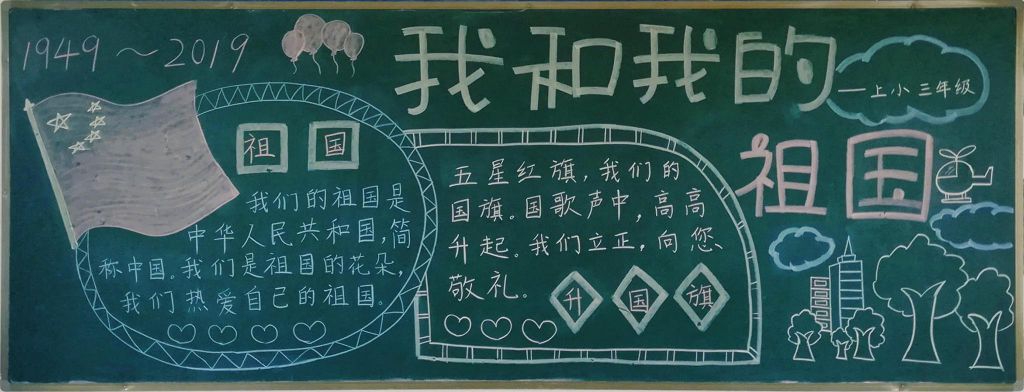 1949～2019
我和我的
祖国
—上小三年级
祖国
我们的祖国是
中华人民共和国,简
称中国。我们是祖国的花朵,
我们热爱自己的祖国。
五星红旗,我们的
国旗。国歌声中,高高
升起。我们立正,向您、
敬礼。
升国旗